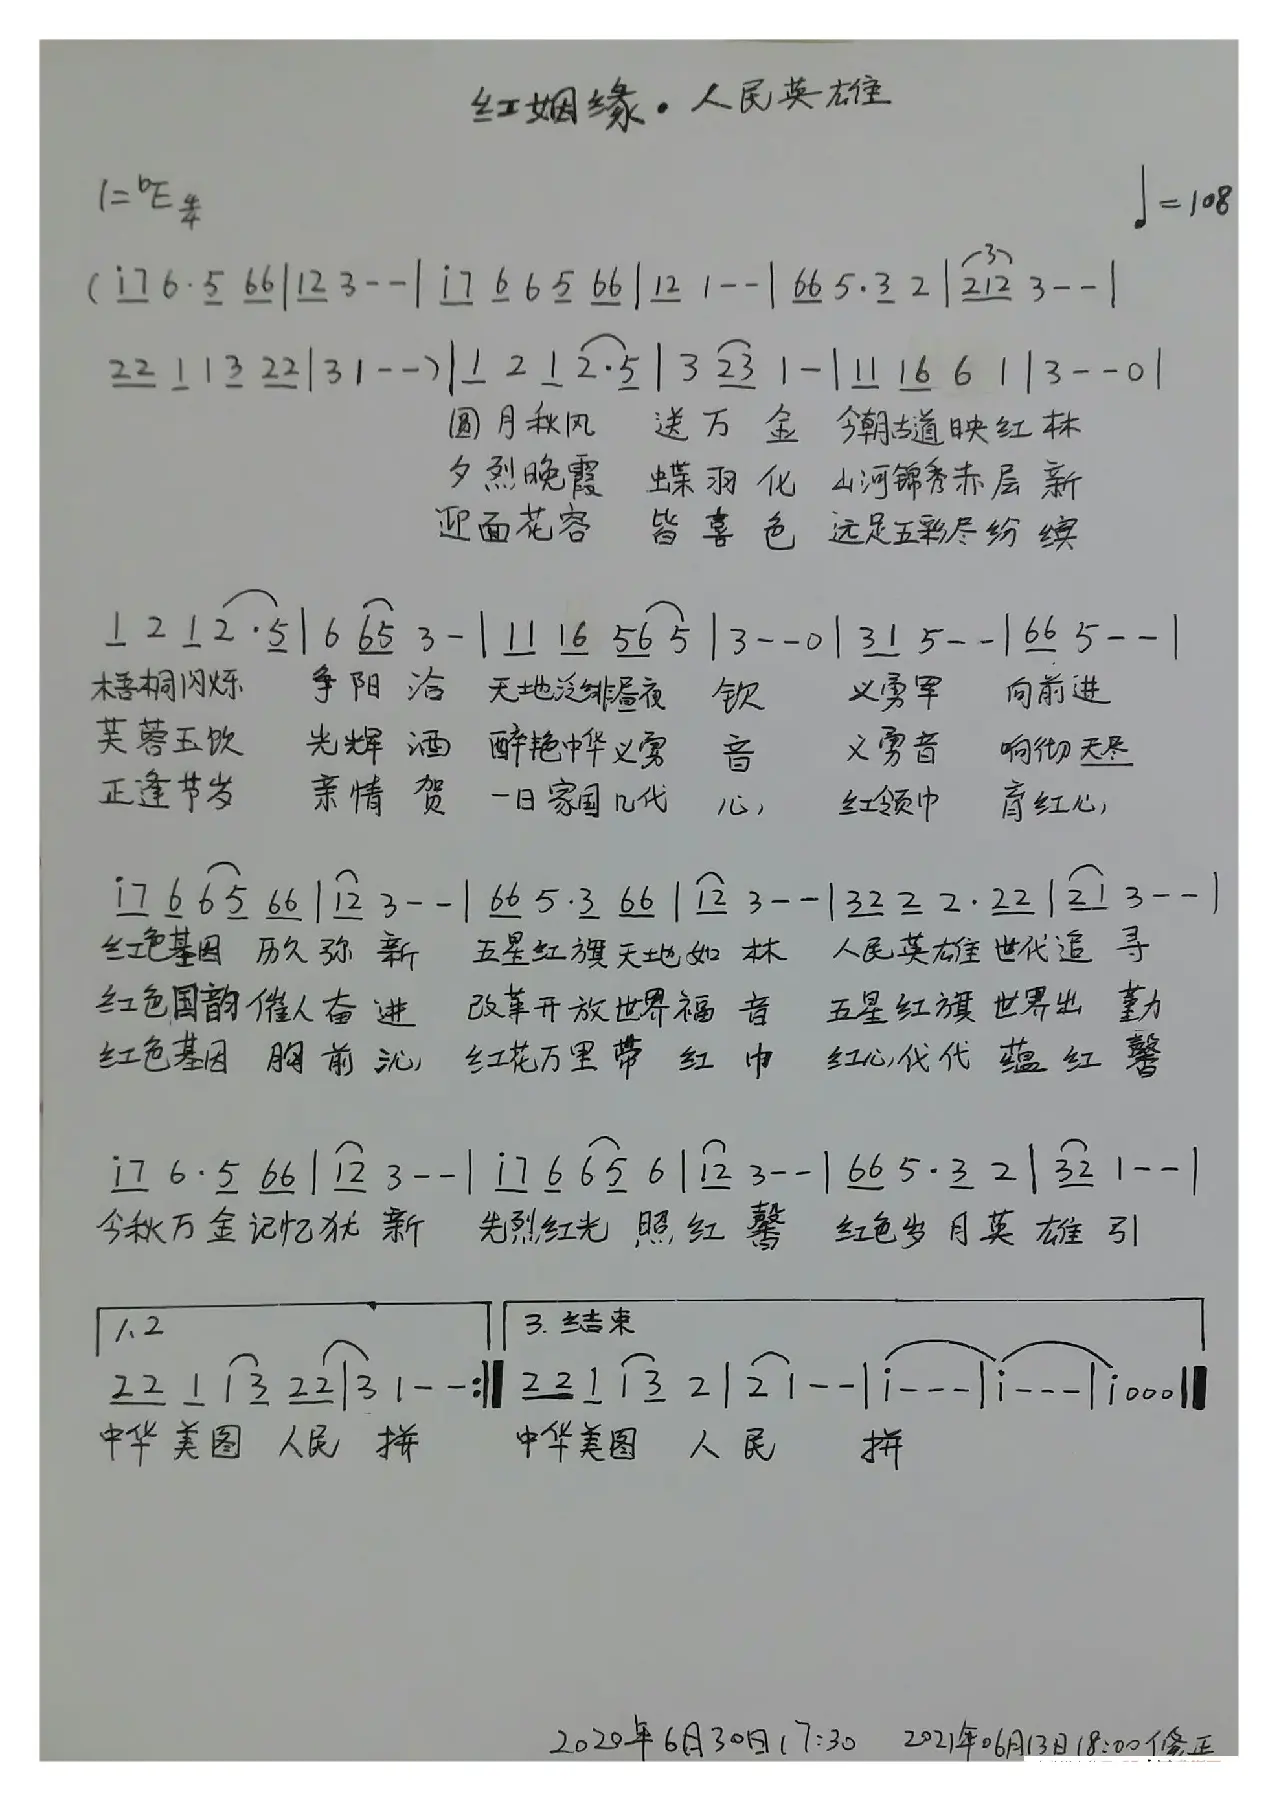 红姻缘·人民英雄
1=ᵇE 4/4 ♩=108
(i7 6·5 66|12 3--|i7 6 6 5 66|12 1--|66 5·3 2|212 3--|
22 1 1 3 22|3 1--)|1 2 1 2·5|3 23 1-|11 16 6 1|3--0|
圆月秋风 送万金 今朝古道映红林
夕烈晚霞 蝶羽化 山河锦秀赤层新
迎面花容 皆喜色 远足五彩尽纷缤
1 2 1 2·5|6 65 3-|11 16 56 5|3--0|31 5--|66 5--|
梧桐闪烁 争阳洽 天地泛绯昼夜 钦 义勇军 向前进
芙蓉玉饮 光辉酒 醉艳中华义勇 音 义勇音 响彻天尽
正逢节岁 亲情贺 一日家国几代 心, 红领巾 育红心,
i7 6 6 5 66|12 3--|66 5·3 66|12 3--|32 2 2·22|21 3--|
红色基因 历久弥新 五星红旗天地如林 人民英雄世代追寻
红色国韵催人奋进 改革开放世界福音 五星红旗世界出勤
红色基因 胸前沁, 红花万里带红巾 红心代代蕴红馨
i7 6·5 66|12 3--|i7 6 6 5 6|12 3--|66 5·3 2|32 1--|
今秋万金记忆犹新 先烈红光照红馨 红色岁月英雄引
1、2 3.结束
22 1 1 3 22|3 1--:‖ 22 1 1 3 2|2 1--|i---|i---|i000‖
中华美图 人民拼 中华美图 人民 拼
2020年6月30日17:30 2021年06月13日18:00修正